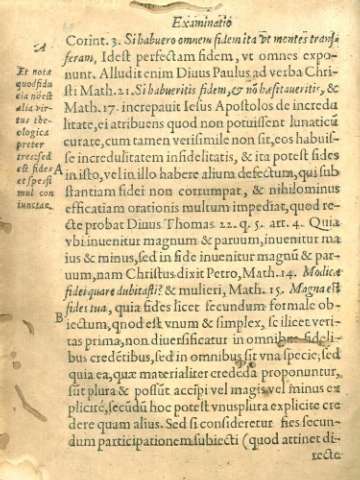 Examinatiō
Corint. 3. Si habuero omnem fidem ita vt mentes transf
feram, Idest perfectam fidem, vt omnes expo
nunt. Alludit enim Diuus Paulus ad verba Chri
sti Math. 21. Si habueritis fidem, & nō hæsitaueritis, &
Math. 17. increpauit Iesus Apostolos de increda
litate, ei atribuens quod non potuissent lunaticū
curate, cum tamen verisimile non sit, eos habuis-
se incredulitatem infidelitatis, & ita potest fides
in isto, vel in illo habere alium defectum, qui sub
stantiam fidei non corrumpat, & nihilominus
efficatiam orationis multum impediat, quod re-
cte probat Diuus Thomas 22. q. 5. art. 4. Quia
vbi inuenitur magnum & paruum, inuenitur ma
ius & minus, sed in fide inuenitur magnū & par-
uum, nam Christus dixit Petro, Math. 14. Modicæ
fidei quare dubitasti? & mulieri, Math. 15. Magna est
fides tua, quia fides licet secundum formale ob-
iectum, qnod est vnum & simplex, scilicet veri-
tas prima, non diuersificatur in omnibus fideli-
bus credētibus, sed in omnibus sit vna specie; sed
quia ea, quæ materialiter credēda proponuntur,
sūt plura & possūt accipi vel magis vel minus ex
plicitè, secūdū hoc potest vnus plura explicite cre
dere quam alius. Sed si consideretur fies secun-
dum participationem subiecti (quod attinet di-
recte
A
Et nota
quod fidu
cia nō est
alia vir-
tus the-
ologica
preter
tres; sed
est fides
et spes si
mul con
iunctæ.
A
B